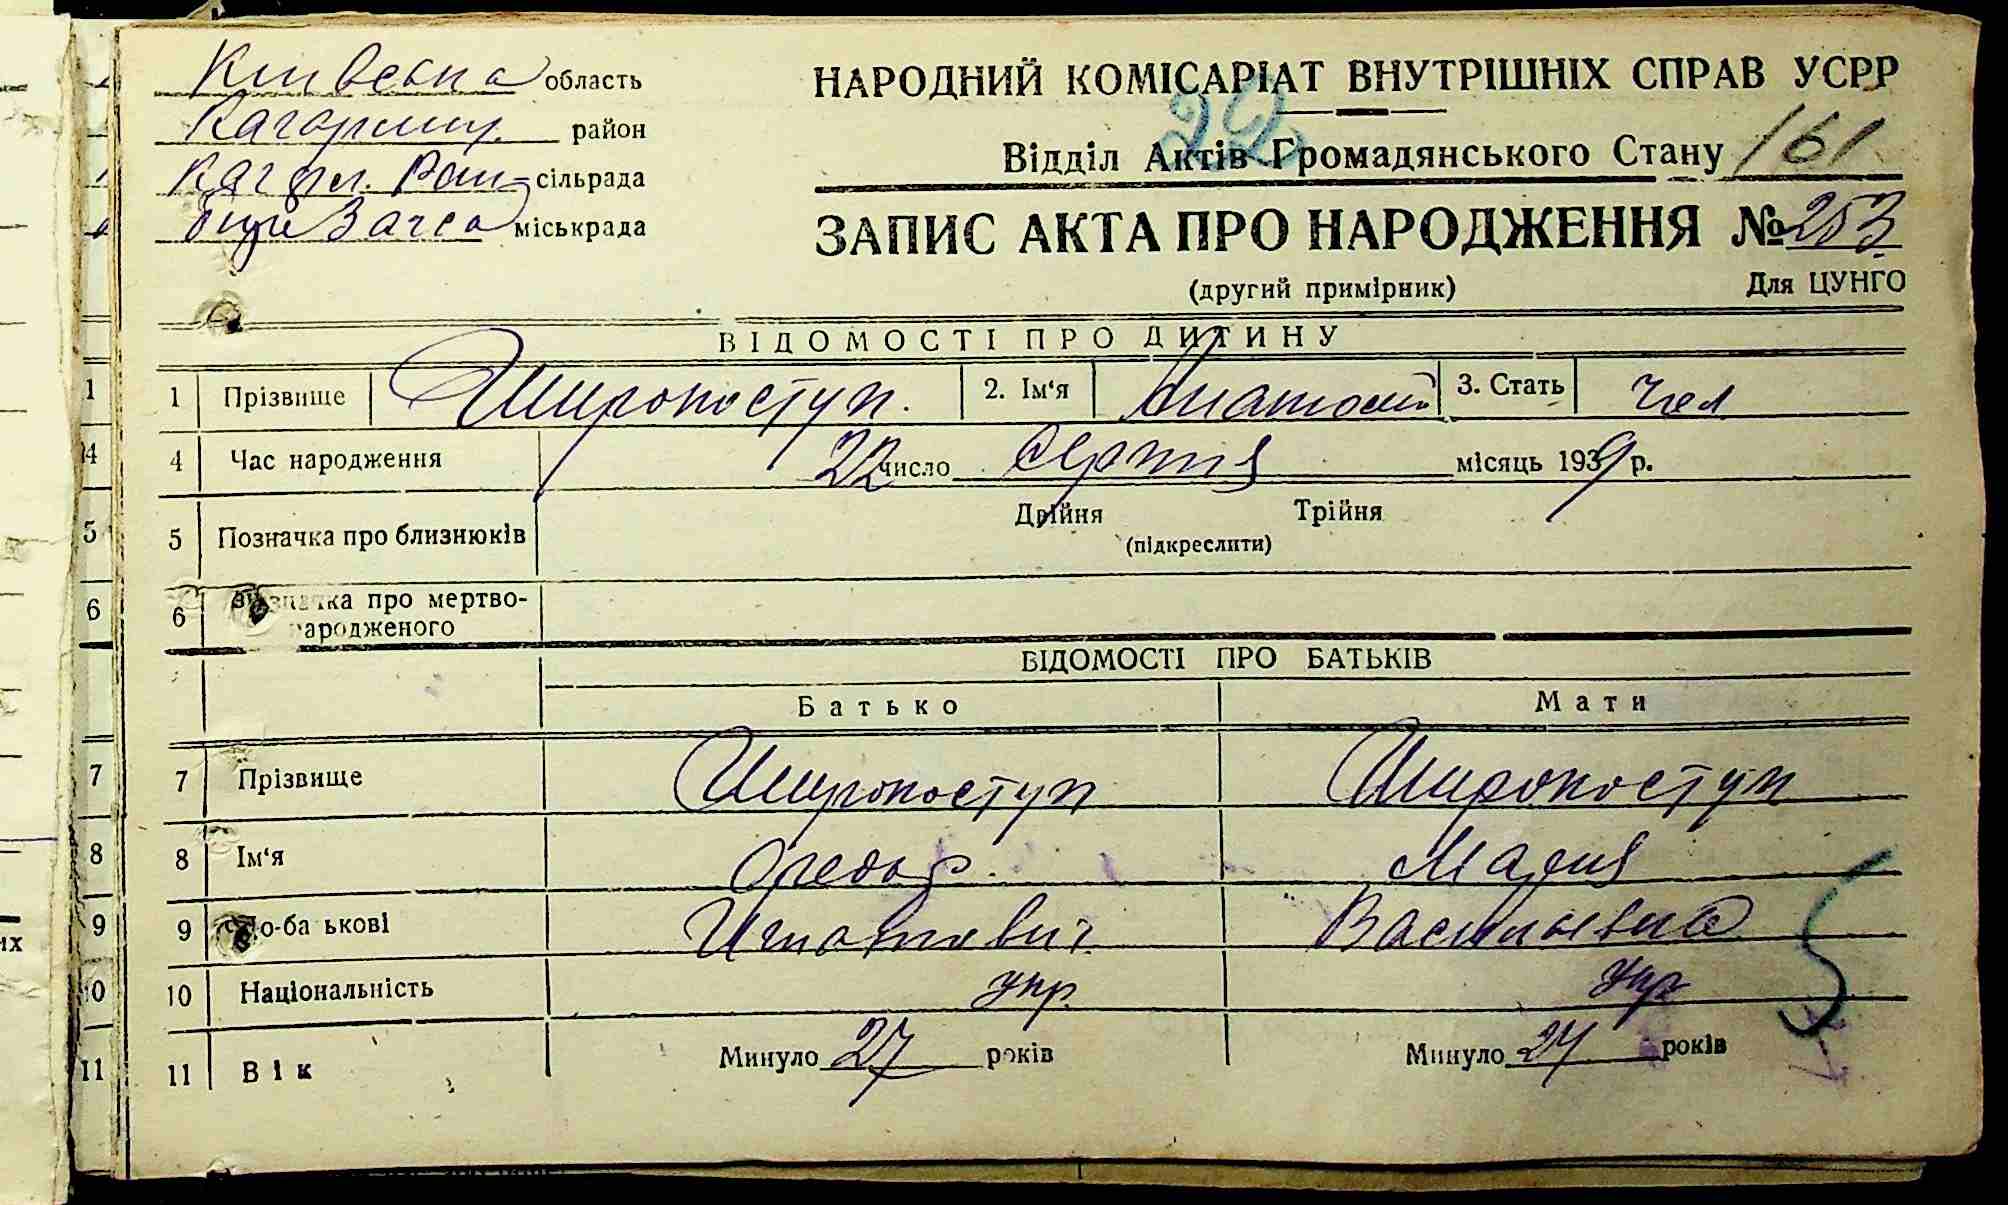 Київська область
Кагарлиц. район
Кагарл. Рай- сільрада
бюро Загса міськрада
НАРОДНИЙ КОМІСАРІАТ ВНУТРІШНІХ СПРАВ УСРР
22
Відділ Актів Громадянського Стану 161
ЗАПИС АКТА ПРО НАРОДЖЕННЯ № 253
(другий примірник) Для ЦУНГО
ВІДОМОСТІ ПРО ДИТИНУ
1 1 Прізвище Широкоступ. 2. Ім'я Анатолий 3. Стать Чел
4 4 Час народження 22 число серпня місяць 1939 р.
5 5 Позначка про близнюків Двійня Трійня
(підкреслити)
6 6 про мертво-
народженого
ВІДОМОСТІ ПРО БАТЬКІВ
Батько Мати
7 7 Прізвище Широкоступ Широкоступ
8 8 Ім'я Федор Мария
9 9 По-ба ькові Игнатович Васильевна
10 10 Національність Укр. Укр
11 11 Вік Минуло 27 років Минуло 24 років